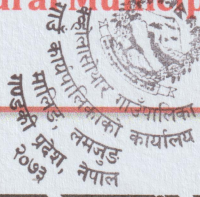 ural Municip
क्व्होलासोथार गाउँपालिका
गाउँ कार्यपालिकाको कार्यालय
मालिङ, लमजुङ
गण्डकी प्रदेश, नेपाल
२०७३